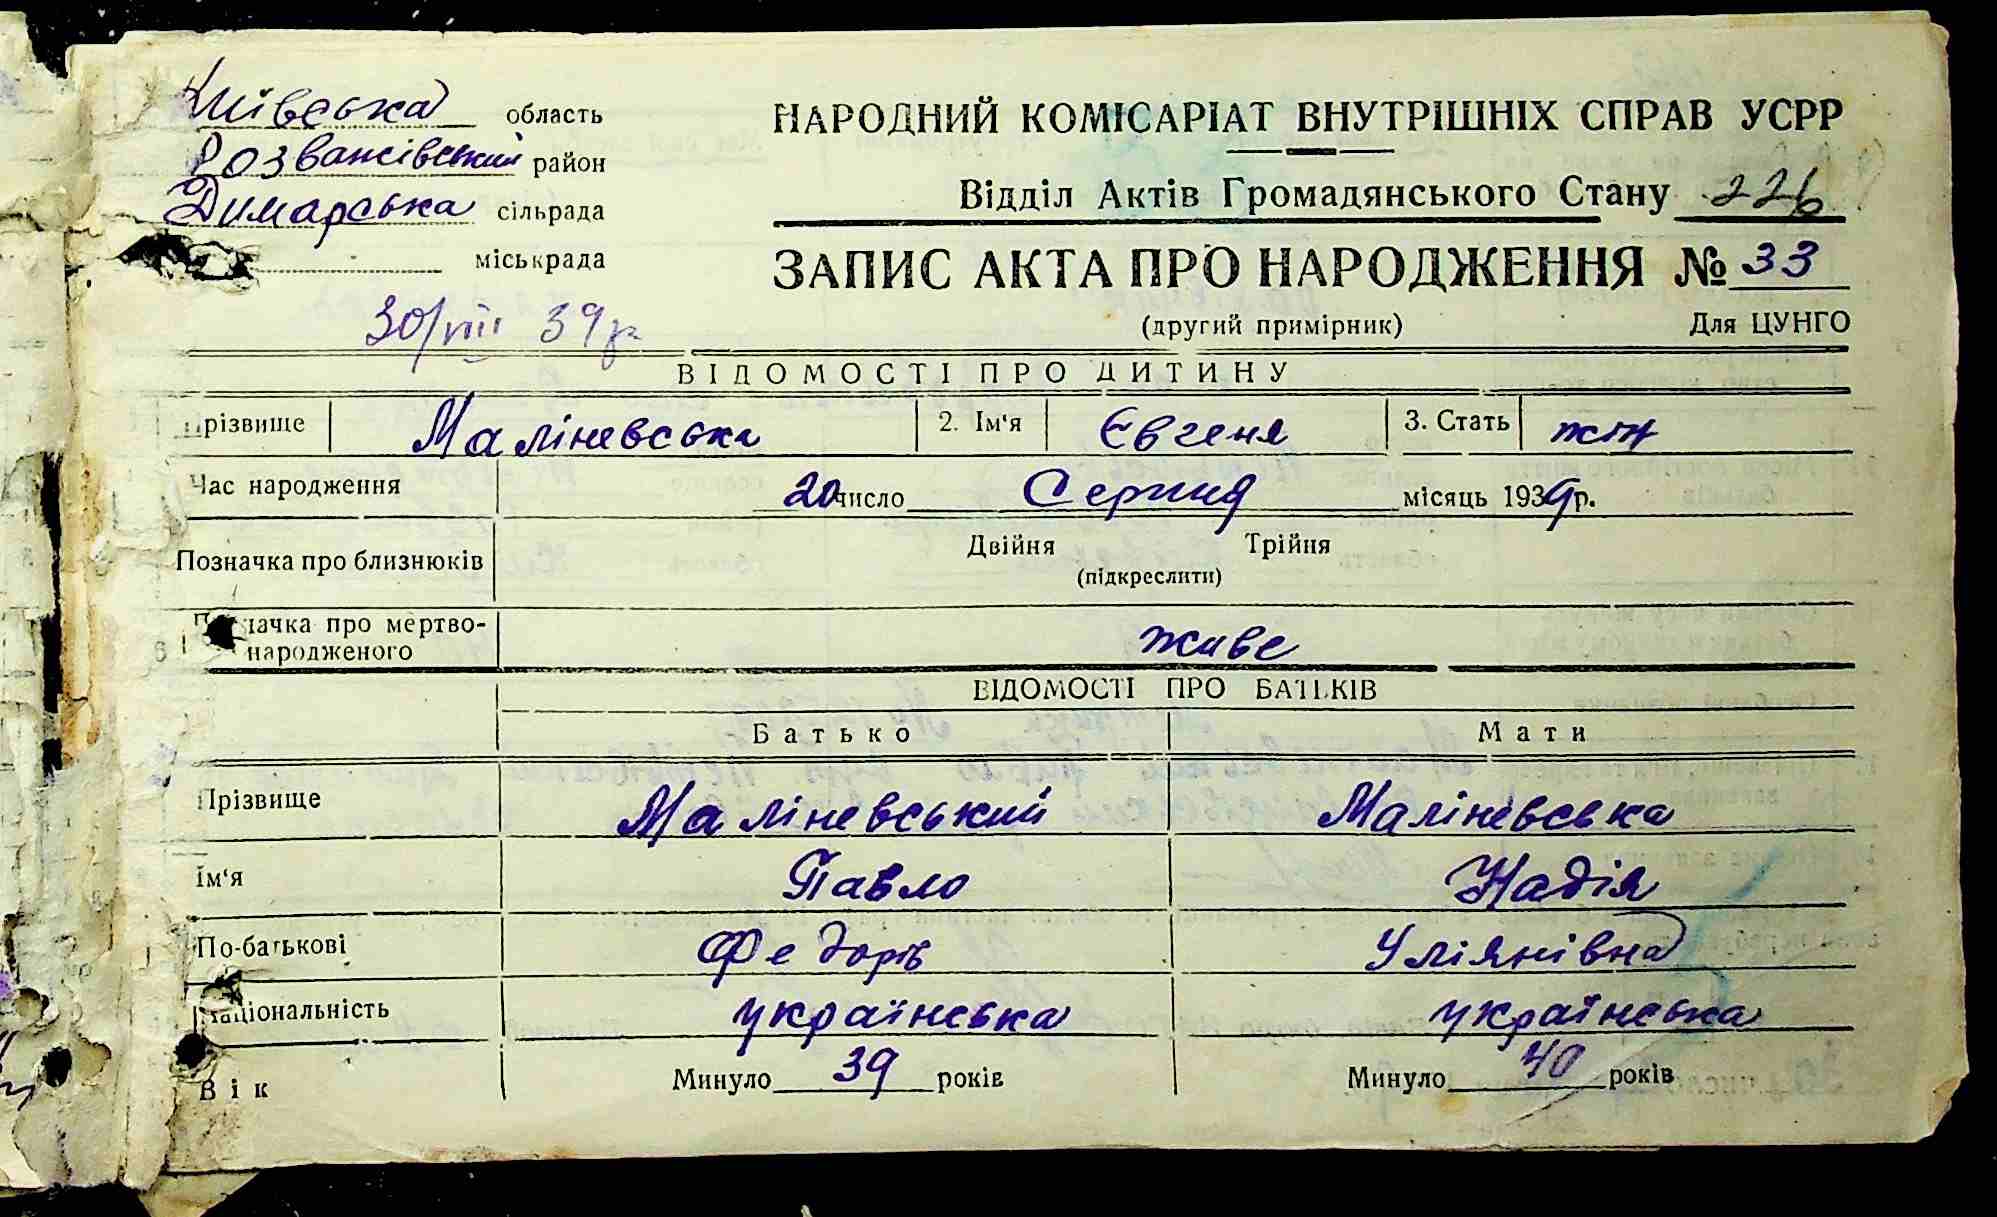 Київська область
Розважівський район
Димарська сільрада
міськрада
30/VIII 39 р.
НАРОДНИЙ КОМІСАРІАТ ВНУТРІШНІХ СПРАВ УСРР
Відділ Актів Громадянського Стану 226
ЗАПИС АКТА ПРО НАРОДЖЕННЯ № 33
(другий примірник) Для ЦУНГО
ВІДОМОСТІ ПРО ДИТИНУ
Прізвище Маліневська 2. Ім'я Євгеня 3. Стать жін
Час народження 20 число Серпня місяць 1939 р.
Позначка про близнюків Двійня Трійня
(підкреслити)
6 Позначка про мертво-
народженого живе
ВІДОМОСТІ ПРО БАТЬКІВ
Батько Мати
Прізвище Маліневський Маліневська
Ім'я Павло Надія
По-батькові Федорів Уліянівна
Національність українська українська
Вік Минуло 39 років Минуло 40 років